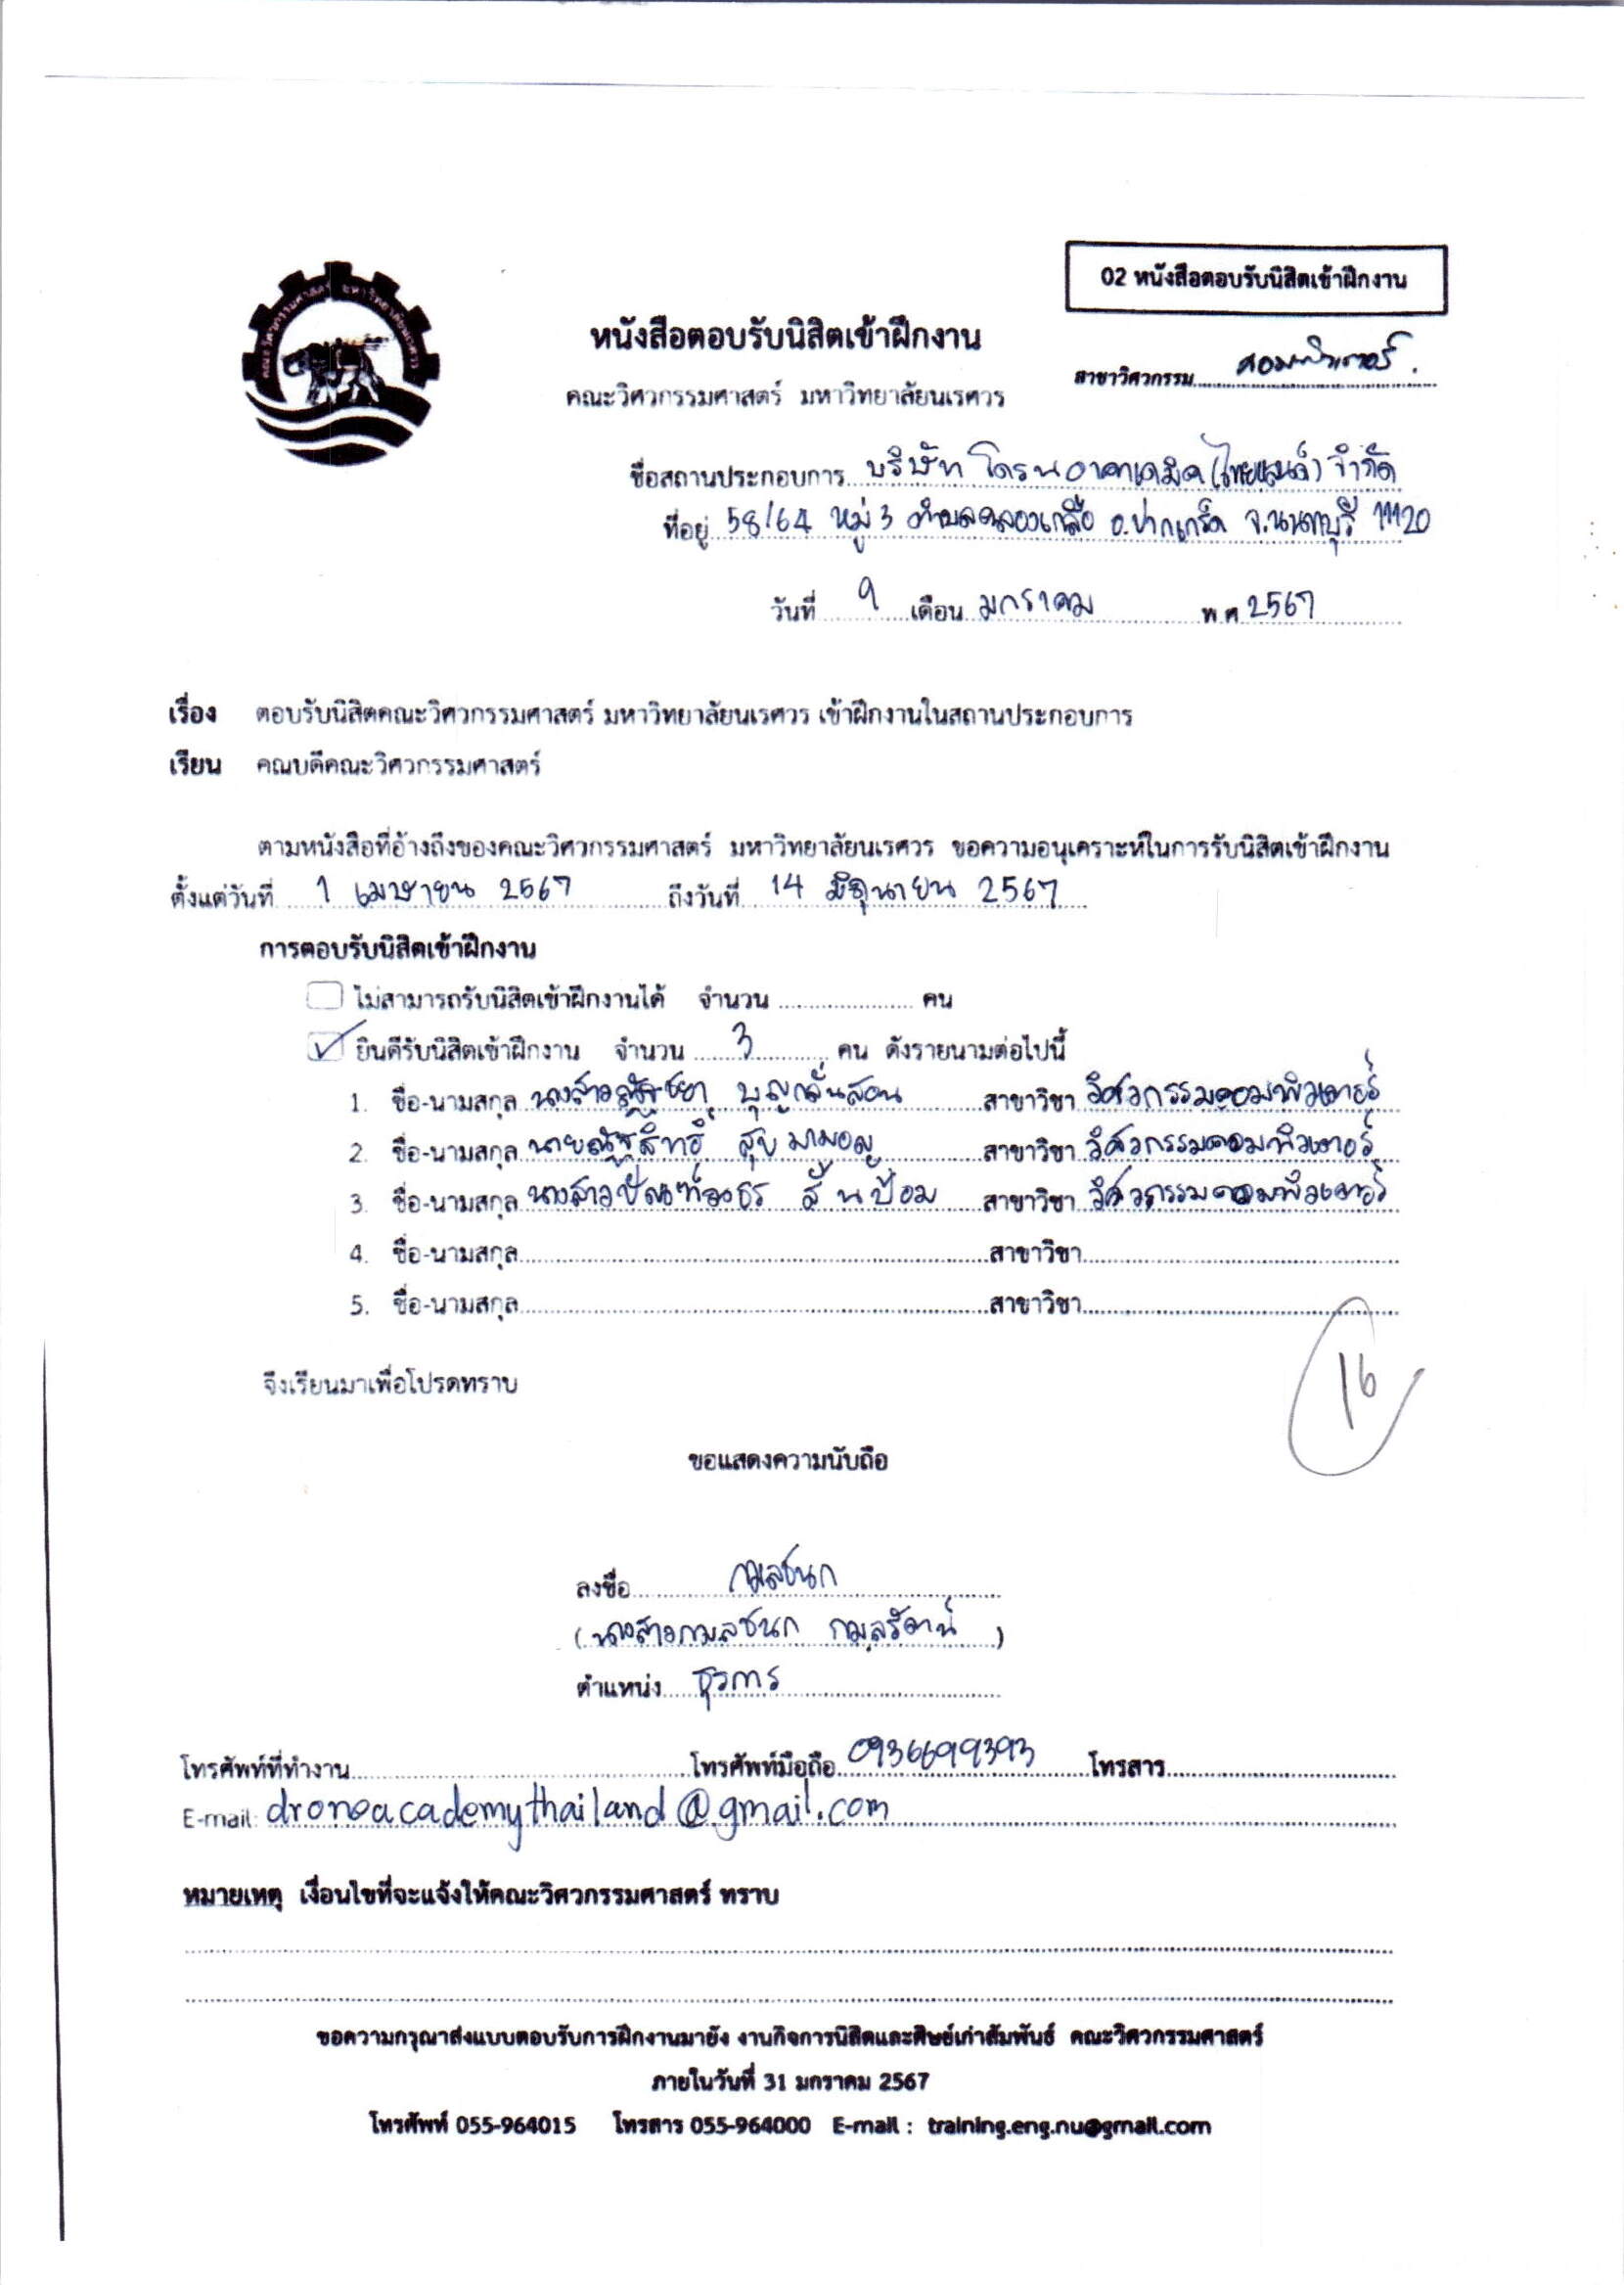 02 หนังสือตอบรับนิสิตเข้าฝึกงาน
คณะวิศวกรรมศาสตร์ มหาวิทยาลัยนเรศวร
หนังสือตอบรับนิสิตเข้าฝึกงาน
สาขาวิศวกรรม คอมพิวเตอร์.
คณะวิศวกรรมศาสตร์ มหาวิทยาลัยนเรศวร
ชื่อสถานประกอบการ บริษัท โดรนอาคาเดมิค (ไทยแลนด์) จำกัด
ที่อยู่ 58/64 หมู่ 3 ตำบลคลองเกลือ อ.ปากเกร็ด จ.นนทบุรี 11120
วันที่ 9 เดือน มกราคม พ.ศ 2567
เรื่อง ตอบรับนิสิตคณะวิศวกรรมศาสตร์ มหาวิทยาลัยนเรศวร เข้าฝึกงานในสถานประกอบการ
เรียน คณบดีคณะวิศวกรรมศาสตร์
ตามหนังสือที่อ้างถึงของคณะวิศวกรรมศาสตร์ มหาวิทยาลัยนเรศวร ขอความอนุเคราะห์ในการรับนิสิตเข้าฝึกงาน
ตั้งแต่วันที่ 1 เมษายน 2567 ถึงวันที่ 14 มิถุนายน 2567
การตอบรับนิสิตเข้าฝึกงาน
ไม่สามารถรับนิสิตเข้าฝึกงานได้ จำนวน คน
ยินดีรับนิสิตเข้าฝึกงาน จำนวน 3 คน ดังรายนามต่อไปนี้
1. ชื่อ-นามสกุล นางสาว บุญกลั่นสอน สาขาวิชา วิศวกรรมคอมพิวเตอร์
2. ชื่อ-นามสกุล นายณัฐสิทธิ์ สาขาวิชา วิศวกรรมคอมพิวเตอร์
3. ชื่อ-นามสกุล นางสาว ลั้นป้อม สาขาวิชา วิศวกรรมคอมพิวเตอร์
4. ชื่อ-นามสกุล สาขาวิชา
5. ชื่อ-นามสกุล สาขาวิชา
16
จึงเรียนมาเพื่อโปรดทราบ
ขอแสดงความนับถือ
ลงชื่อ กมลชนก
(นางสาวกมลชนก กมลรัตน์)
ตำแหน่ง ธุรการ
โทรศัพท์ที่ทำงาน โทรศัพท์มือถือ 0936699393 โทรสาร
E-mail: droneacademythailand@gmail.com
หมายเหตุ เงื่อนไขที่จะแจ้งให้คณะวิศวกรรมศาสตร์ ทราบ
ขอความกรุณาส่งแบบตอบรับการฝึกงานมายัง งานกิจการนิสิตและศิษย์เก่าสัมพันธ์ คณะวิศวกรรมศาสตร์
ภายในวันที่ 31 มกราคม 2567
โทรศัพท์ 055-964015 โทรสาร 055-964000 E-mail : training.eng.nu@gmail.com